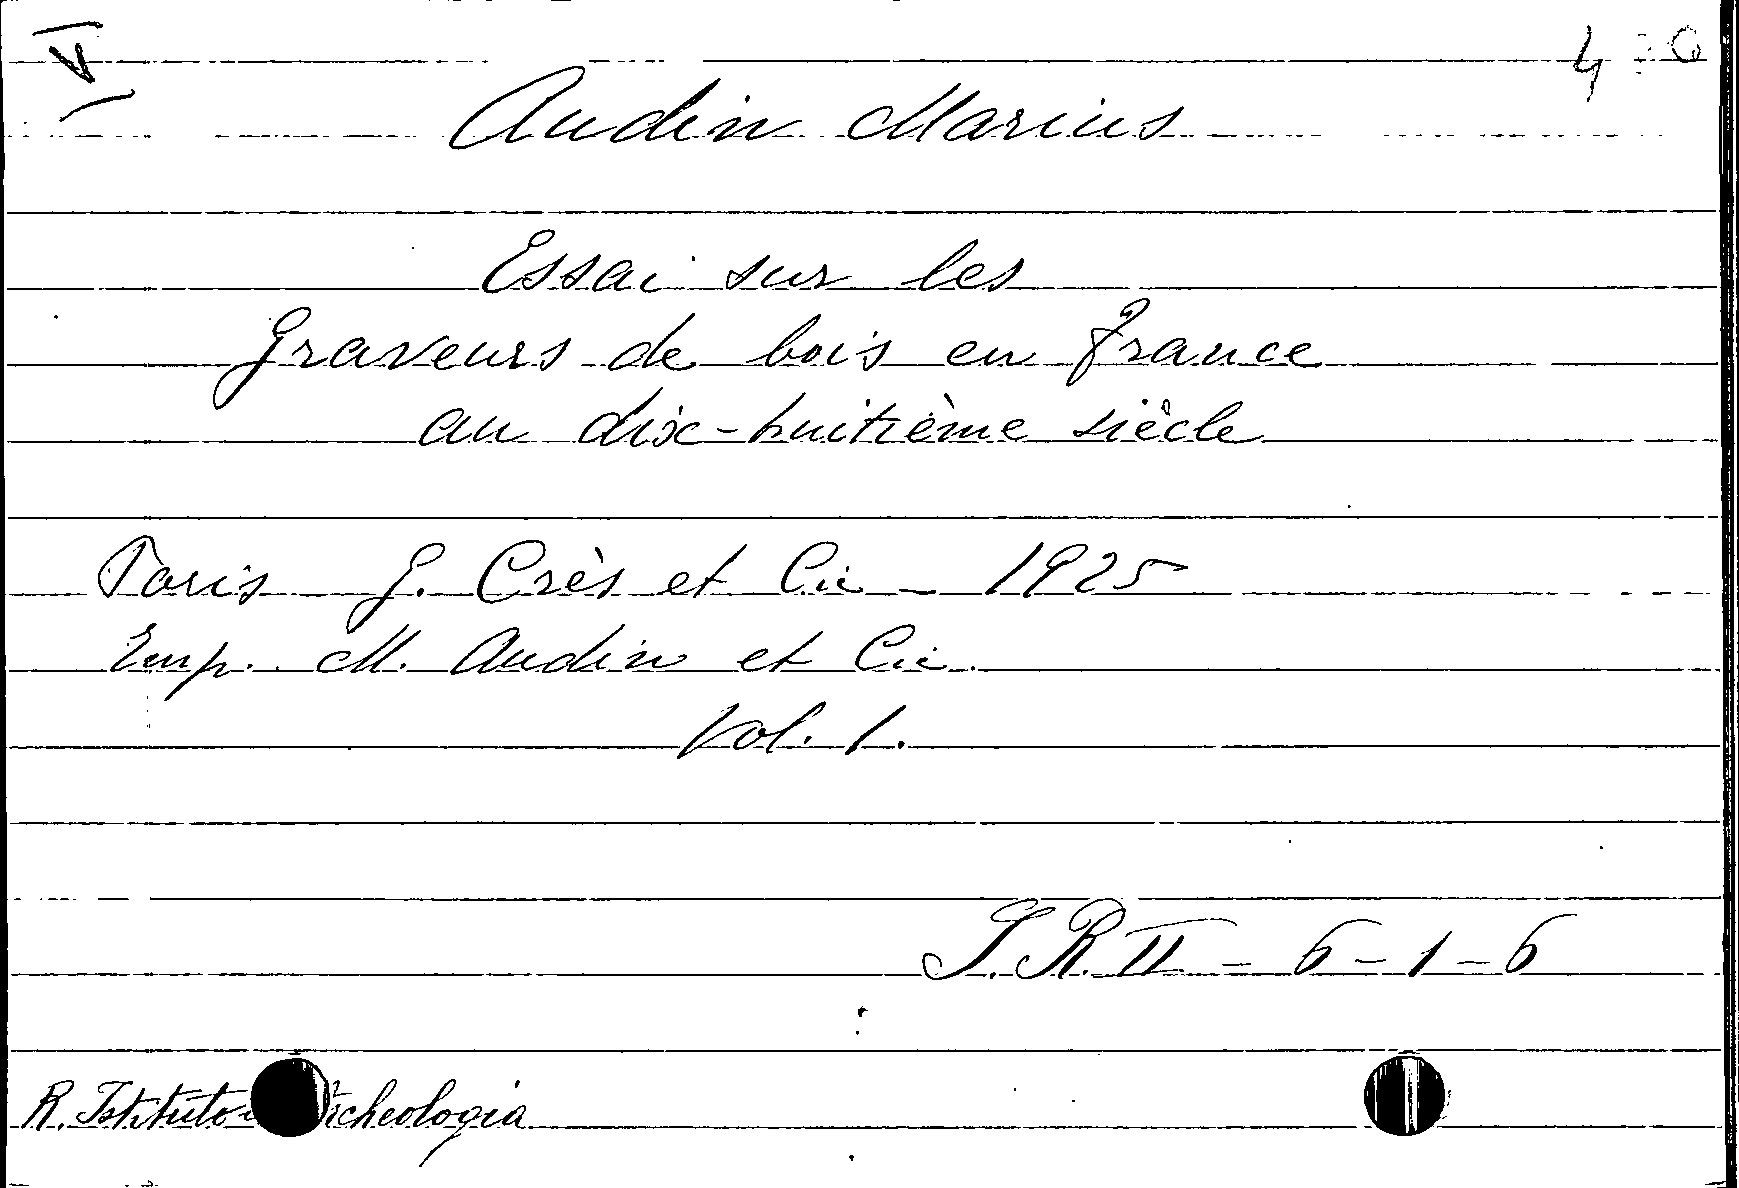 VI
Audin Marius
Essai sur les
graveurs de bois en France
au dix-huitième siècle
Paris G. Crès et Cie - 1925
Imp. M. Audin et Cie.
Vol. 1.
S.R. II - 6 - 1 - 6
R. Istituto Archeologia